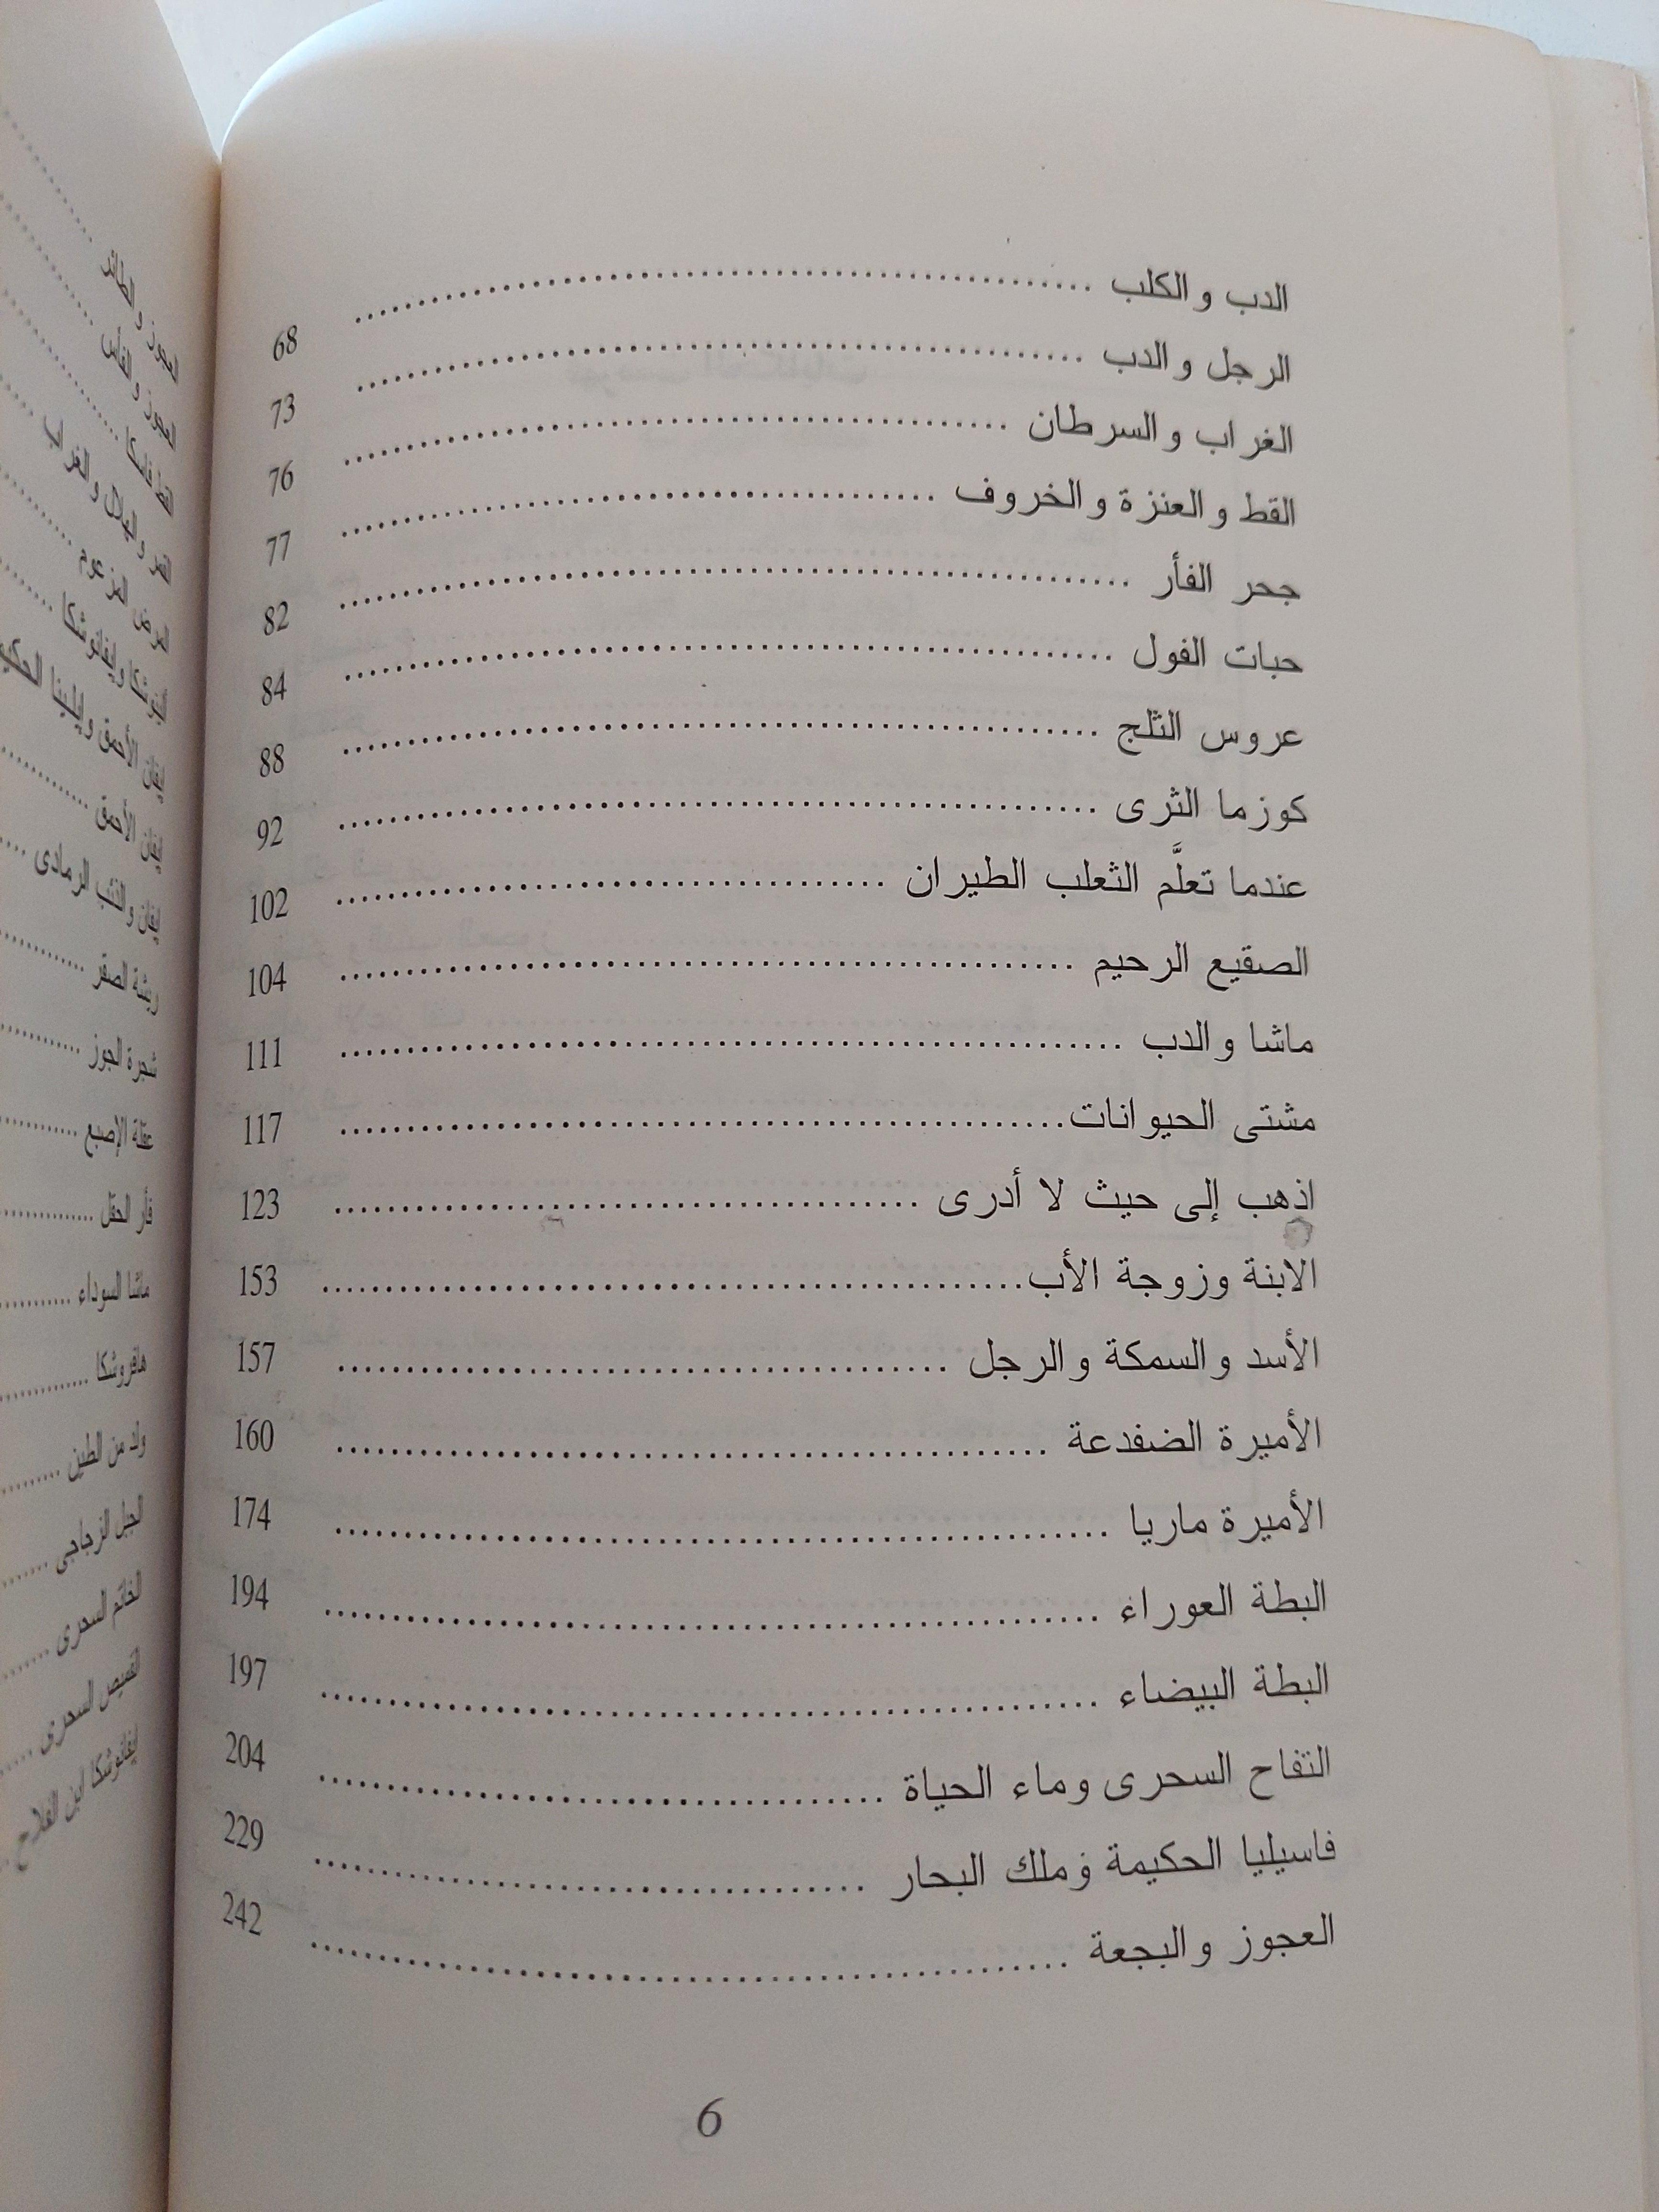 الدب والكلب ........................................ 68
الرجل والدب ........................................ 73
الغراب والسرطان ........................................ 76
القط والعنزة والخروف ........................................ 77
جحر الفأر ........................................ 82
حبات الفول ........................................ 84
عروس الثلج ........................................ 88
كوزما الثرى ........................................ 92
عندما تعلَّم الثعلب الطيران ........................................ 102
الصقيع الرحيم ........................................ 104
ماشا والدب ........................................ 111
مشتى الحيوانات ........................................ 117
اذهب إلى حيث لا أدرى ........................................ 123
الابنة وزوجة الأب ........................................ 153
الأسد والسمكة والرجل ........................................ 157
الأميرة الضفدعة ........................................ 160
الأميرة ماريا ........................................ 174
البطة العوراء ........................................ 194
البطة البيضاء ........................................ 197
التفاح السحرى وماء الحياة ........................................ 204
فاسيليا الحكيمة وملك البحار ........................................ 229
العجوز والبجعة ........................................ 242
6
العجوز والطائر
العجوز والفأس
إيفان الأحمق
إيفان والذئب الرمادى
ريشة الصقر
شجرة الجوز
عقلة الإصبع
فأر الحقل
ماشا السوداء
مافروشكا
ولد من الطين
الجبل الزجاجى
الخاتم السحرى
القميص السحرى
إيفانوشكا ابن الفلاح